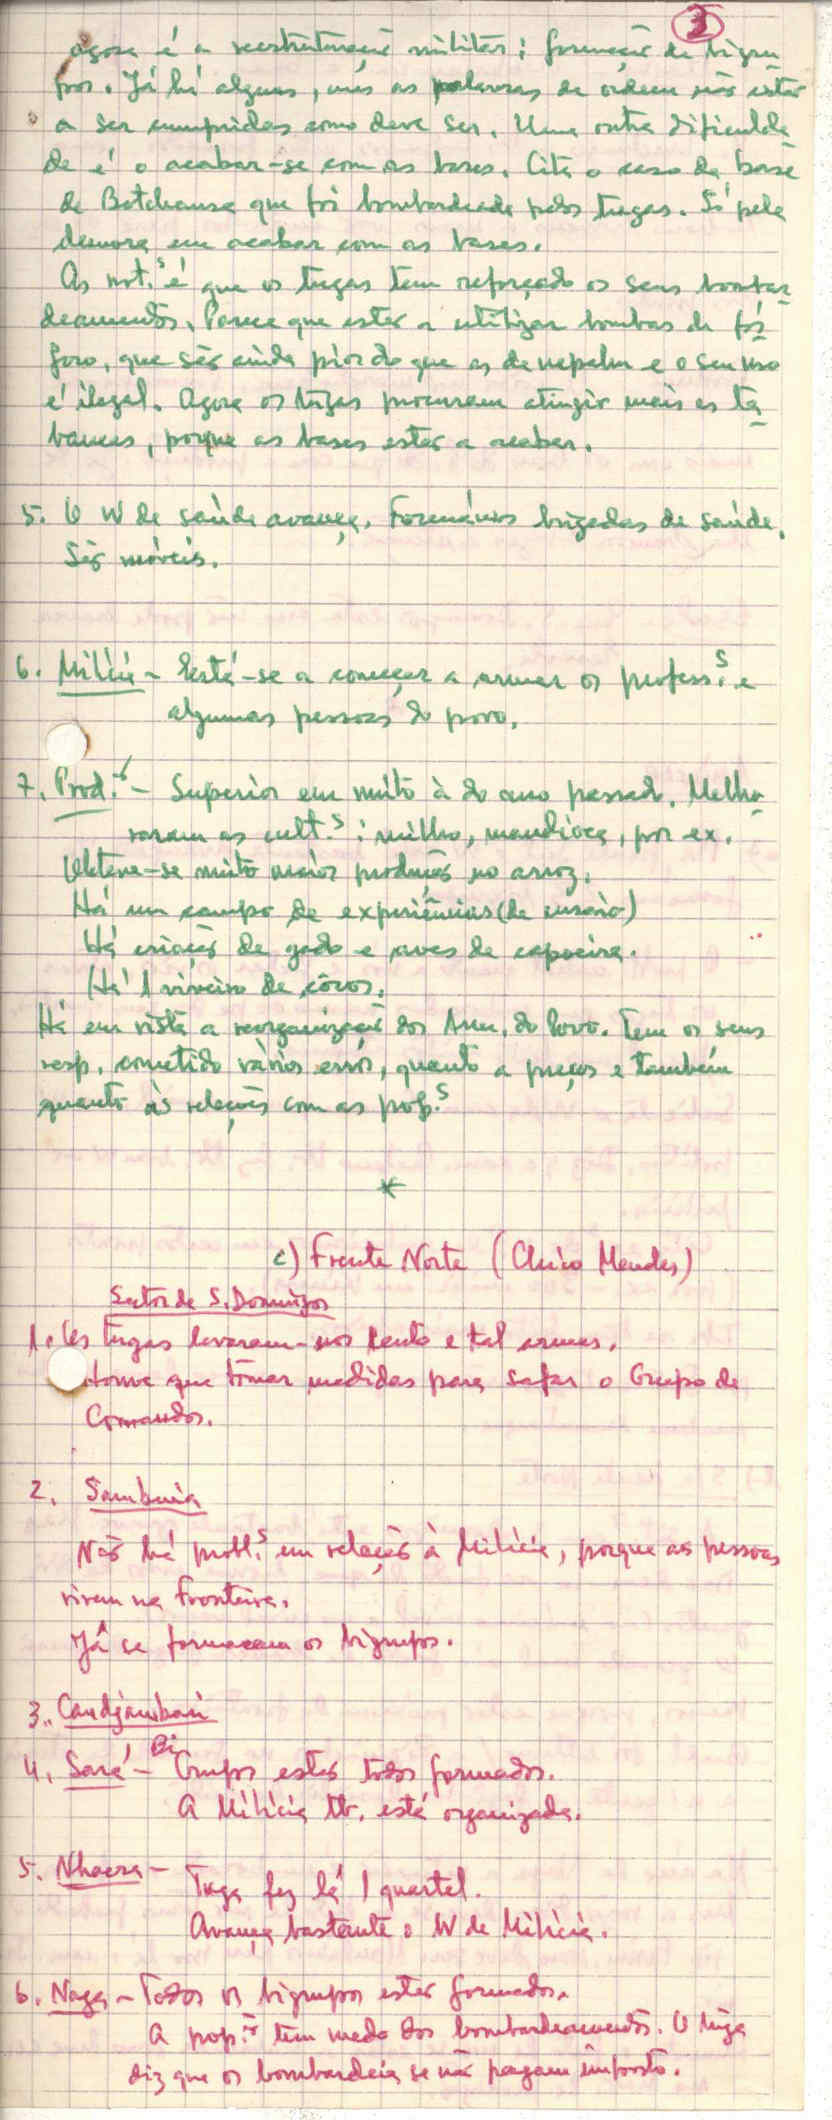 3
agora é a reestruturação militar: formação de bigru-
pos. Já há alguns, mas as palavras de ordem não estão
a ser cumpridas como deve ser. Uma outra dificulda-
de é o acabar-se com as bases. Cita o caso da base
de que foi bombardeada pelos tugas. Só pela
demora em acabar com as bases.
As not.s é que os tugas tem reforçado os seus bombar-
deamentos. Parece que estão a utilizar bombas de fós-
foro, que são ainda pior do que as de napalm e o seu uso
é ilegal. Agora os tugas procuram atingir mais as ta-
bancas, porque as bases estão a acabar.
5. O W de saúde avança. Formámos brigadas de saúde.
São móveis.
6. Milícia - Está-se a começar a armar os profess.s e
algumas pessoas do povo.
7. Prod.ão - Superior em muito à do ano passado. Melho-
raram as cult.s: milho, mandioca, por ex.
Obteve-se muito maior produção no arroz.
Há um campo de experiências (de ensaio)
Há criação de gado e aves de capoeira.
Há 1 viveiro de côcos.
Há em vista a reorganização dos Arm. do Povo. Tem os seus
resp. cometido vários erros, quanto a preços e também
quanto às relações com as pop.s
*
c) Frente Norte (Chico Mendes)
Sector de S. Domingos
1. Os tugas levaram-nos cento e tal armas.
Houve que tomar medidas para safar o Grupo de
Comandos.
2. Sambuiá
Não há probl.s em relação à Milícia, porque as pessoas
vivem na fronteira.
Já se formaram os bigrupos.
3. Candjambari
4. Sará - Bi Grupos estão todos formados.
A Milícia tb. está organizada.
5. Nhacra - Tuga fez lá 1 quartel.
Avança bastante o W de Milícia.
6. Naga - Todos os bigrupos estão formados.
A pop.ão tem medo dos bombardeamentos. O tuga
diz que os bombardeia se não pagam imposto.